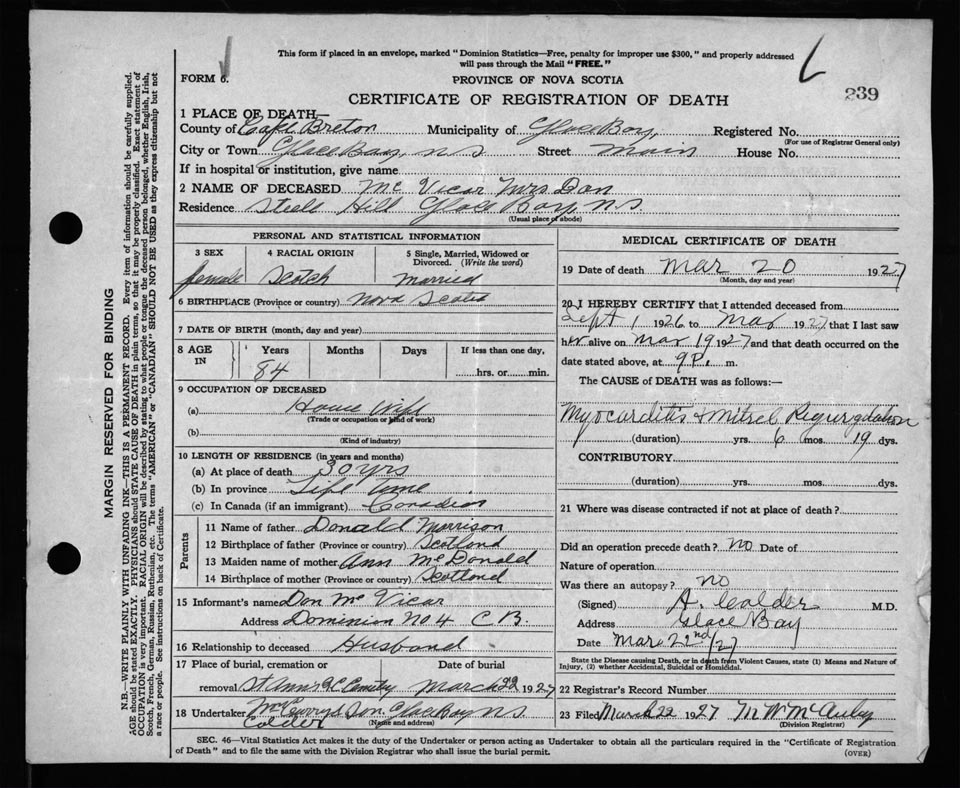 This form if placed in an envelope, marked "Dominion Statistics—Free, penalty for improper use $300," and properly addressed
will pass through the Mail "FREE."
FORM 6.
PROVINCE OF NOVA SCOTIA
239
CERTIFICATE OF REGISTRATION OF DEATH
1 PLACE OF DEATH—
County of Cape Breton Municipality of Glace Bay, Registered No.
(For use of Registrar General only)
City or Town Glace Bay, N S Street Main House No.
If in hospital or institution, give name
2 NAME OF DECEASED Mc Vicar Mrs Dan
Residence Steele Hill Glace Bay, N.S.
(Usual place of abode)
PERSONAL AND STATISTICAL INFORMATION
3 SEX 4 RACIAL ORIGIN 5 Single, Married, Widowed or
Divorced. (Write the word)
female Scotch Married
6 BIRTHPLACE (Province or country) Nova Scotia
7 DATE OF BIRTH (month, day and year)
8 AGE IN Years Months Days If less than one day,
84 hrs. or min.
9 OCCUPATION OF DECEASED
(a) House Wife
(Trade or occupation or kind of work)
(b)
(Kind of industry)
10 LENGTH OF RESIDENCE (in years and months)
(a) At place of death 30 yrs
(b) In province Life time
(c) In Canada (if an immigrant) Canadian
Parents
11 Name of father Donald Morrison
12 Birthplace of father (Province or country) Scotland
13 Maiden name of mother Ann McDonald
14 Birthplace of mother (Province or country) Scotland
15 Informant's name Dan Mc Vicar
Address Dominion No 4 C.B.
16 Relationship to deceased Husband
17 Place of burial, cremation or Date of burial
removal St Ann's R.C. March 22 1927
18 Undertaker Son Glace Bay N.S.
Calder (Name and address)
MEDICAL CERTIFICATE OF DEATH
19 Date of death Mar 20 1927
(Month, day and year)
20 I HEREBY CERTIFY that I attended deceased from
Sept 1 1926 to Mar 1927 that I last saw
her alive on Mar 19 1927 and that death occurred on the
date stated above, at 9 P. m.
The CAUSE OF DEATH was as follows:—
Myocarditis & Mitrel Regurgatation
(duration) yrs. 6 mos. 19 dys.
CONTRIBUTORY
(duration) yrs. mos. dys.
21 Where was disease contracted if not at place of death?
Did an operation precede death? no Date of
Nature of operation
Was there an autopsy? no
(Signed) A. Calder M.D.
Address Glace Bay
Date Mar 22nd/27
State the Disease causing Death, or in death from Violent Causes, state (1) Means and Nature of
Injury, (2) whether Accidental, Suicidal or Homicidal.
22 Registrar's Record Number
23 Filed March 22 1927
(Division Registrar)
SEC. 46—Vital Statistics Act makes it the duty of the Undertaker or person acting as Undertaker to obtain all the particulars required in the "Certificate of Registration
of Death" and to file the same with the Division Registrar who shall issue the burial permit.
(OVER)
MARGIN RESERVED FOR BINDING
N.B.—WRITE PLAINLY, WITH UNFADING INK—THIS IS A PERMANENT RECORD. Every item of information should be carefully supplied.
AGE should be stated EXACTLY. PHYSICIANS should STATE CAUSE OF DEATH in plain terms, so that it may be properly classified. Exact statement of
OCCUPATION is very important. RACIAL ORIGIN will be described by stating to what people or tongue the deceased person belonged, whether English, Irish,
Scotch, French, German, Russian, Ruthenian, etc. The terms "AMERICAN" or "CANADIAN" SHOULD NOT BE USED as they express citizenship but not
a race or people. See instructions on back of Certificate.